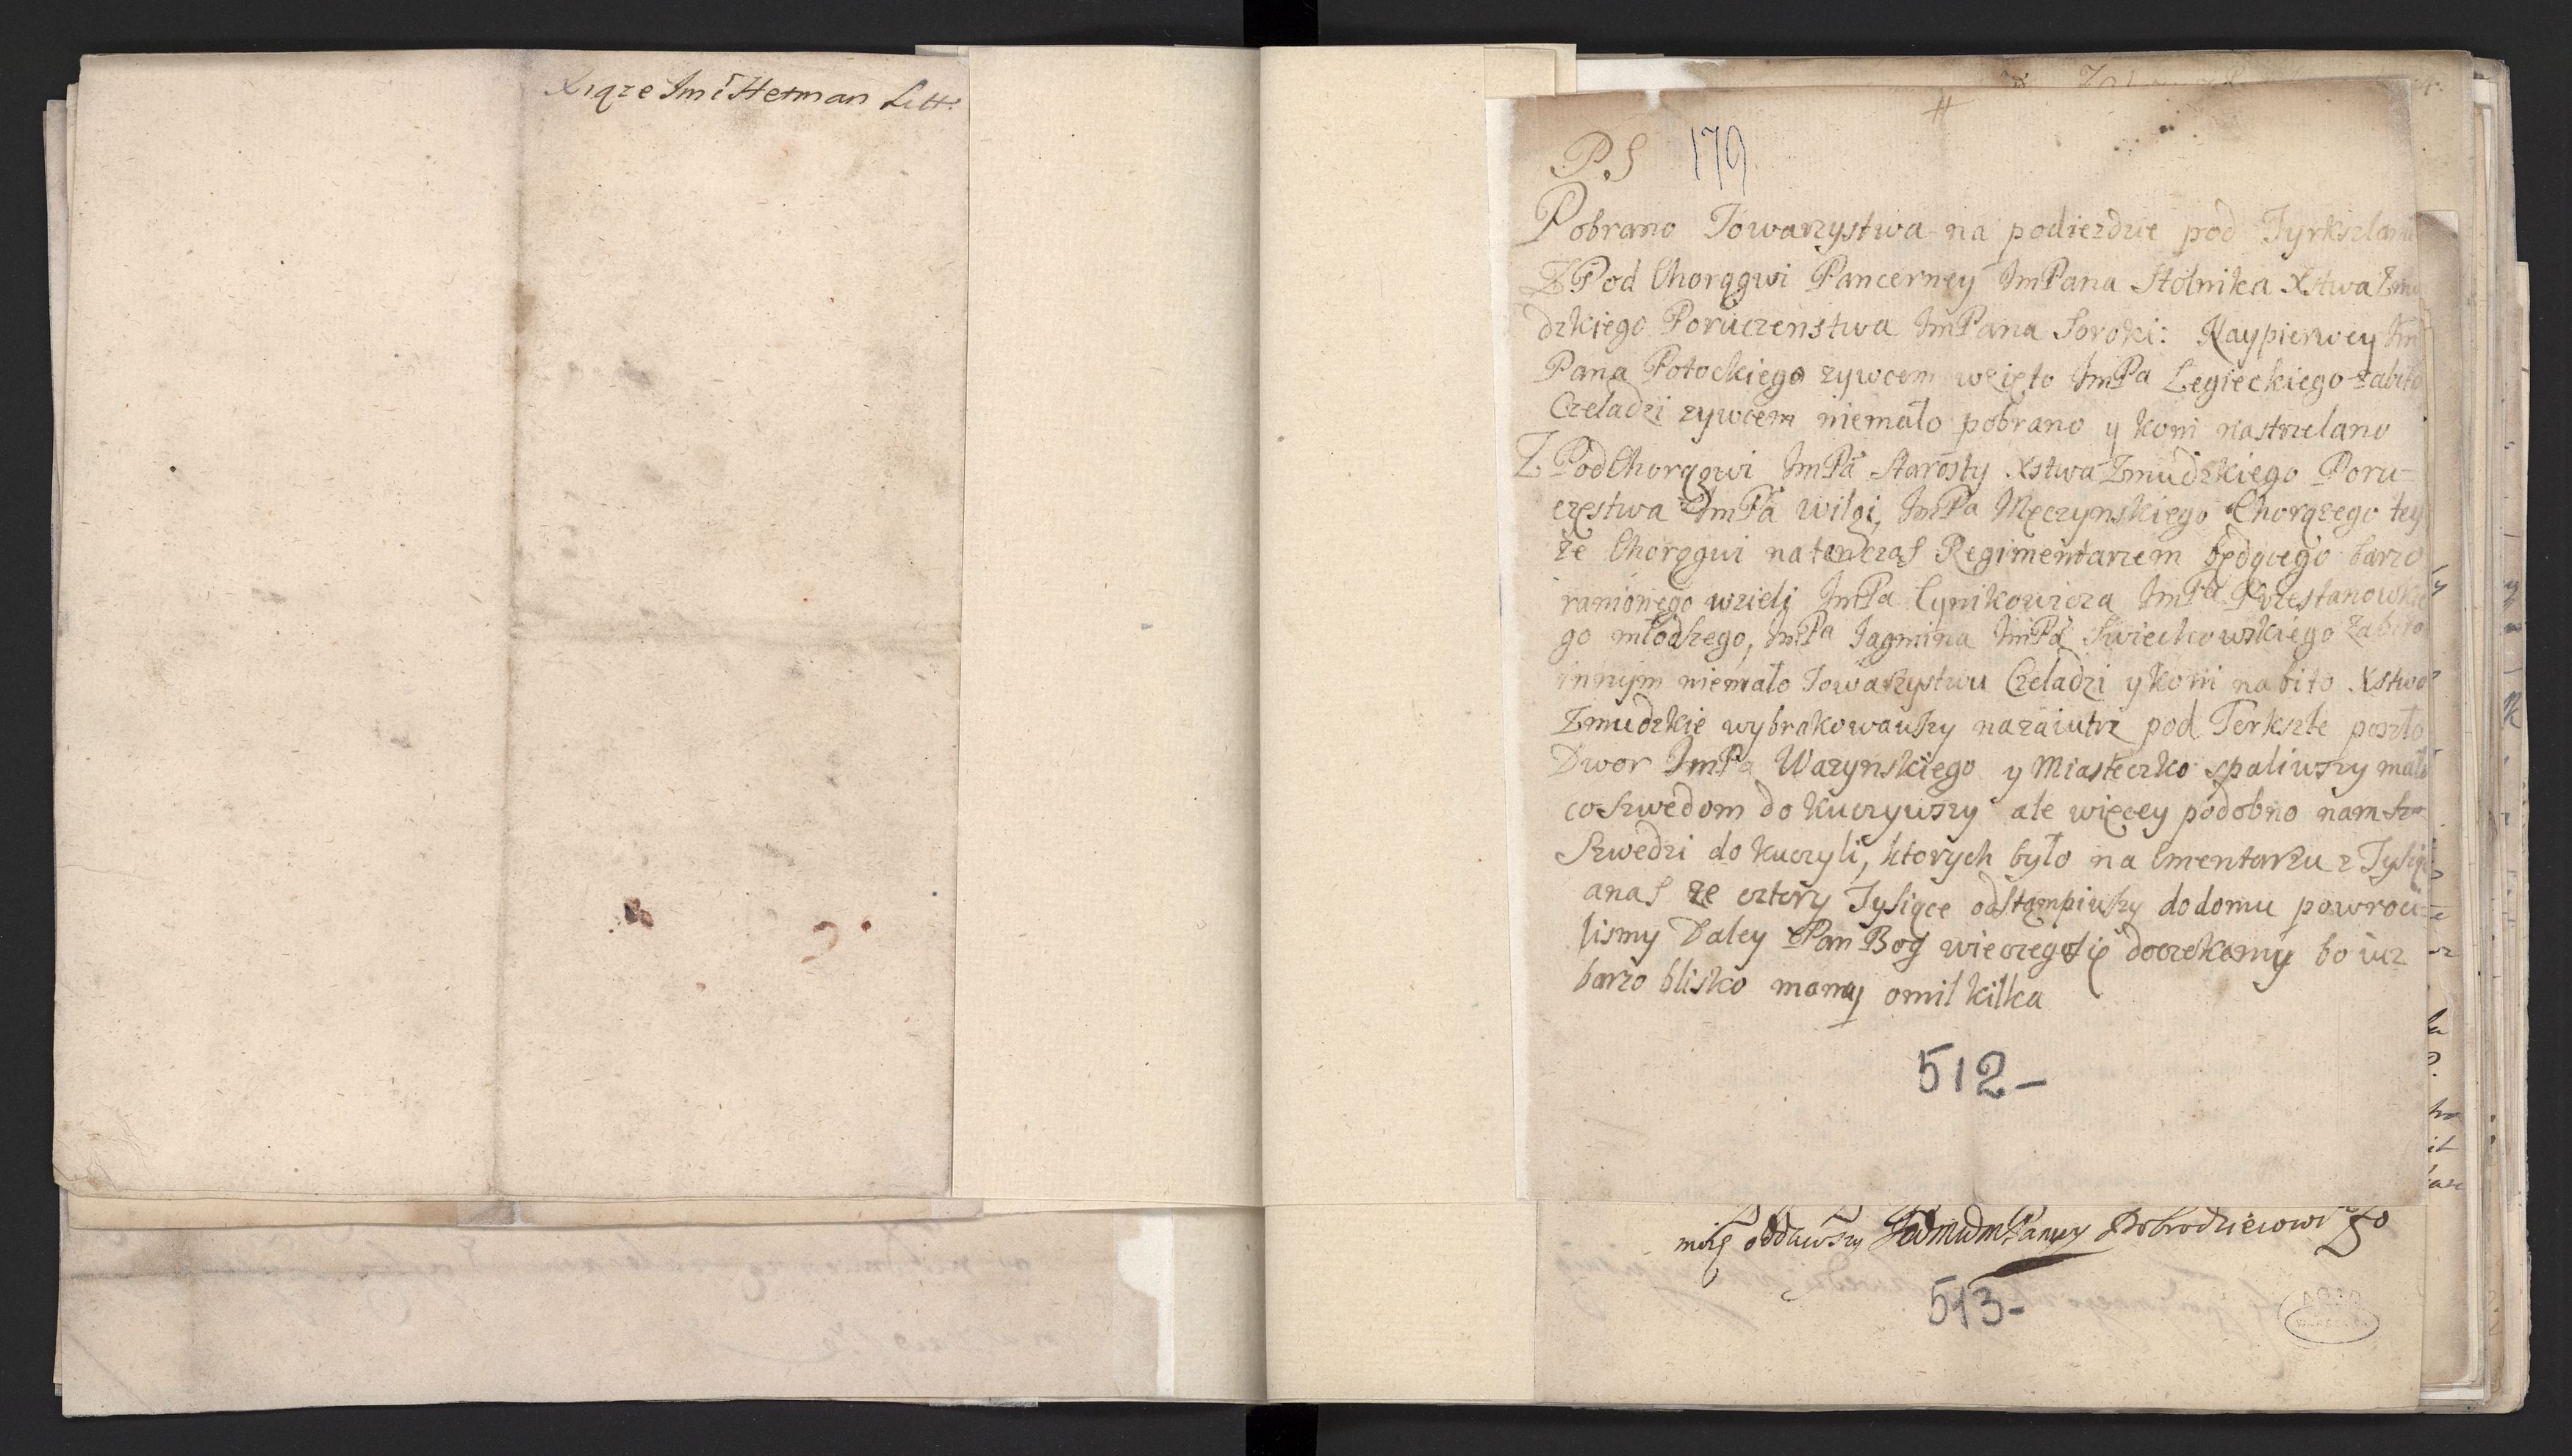 Xiąze Jmć Hetman Litt:
P.S 179
Pobrano Towarzystwa na podiezdzie pod Tyrkszlami
Z Pod Chorągwi Pancerney JmPana Stolnika Xstwa Zmu
dzkiego Poruczenstwa JmPana Soroki: Naypierwey Jm
Pana Potockiego zywcem wzięto JmPa Legieckiego zabito
Czeladzi zywcem niemało pobrano y koni nastrzelano
Z PodChorągwi JmPa Starosty Xstwa Zmudzkiego Poru-
częstwa JmPa wilgi, JmPa Męczynskiego Chorązego tey
ze Chorągwi natenczas Regimentarzem będącego barzo
ranionego wzieli JmPa Cynikowicza JmPa Krzestanowskie
go młodszego, JmPa Jagmina JmPa Swiechowskiego zabito
innym niemało Towarzystwu Czeladzi y koni nabito Xstwo
Zmudzkie wybrakowawszy nazaiutrz pod Terkszle poszło
Dwor JmPa Wazynskiego y Miasteczko spaliwszy mało
co Szwedom dokuczywszy ale więcey podobno nam
Szwedzi dokuczyli, ktorych było na Cmentarzu z Tysiąc
anas ze cztery Tysiące odstąmpiwszy dodomu powroci-
lismy Daley Pan Bog wie czego się doczekamy bo iuz
barzo blisko mamy omil kilka
512-
mię oddawszy Dobrodzieiowi
513-